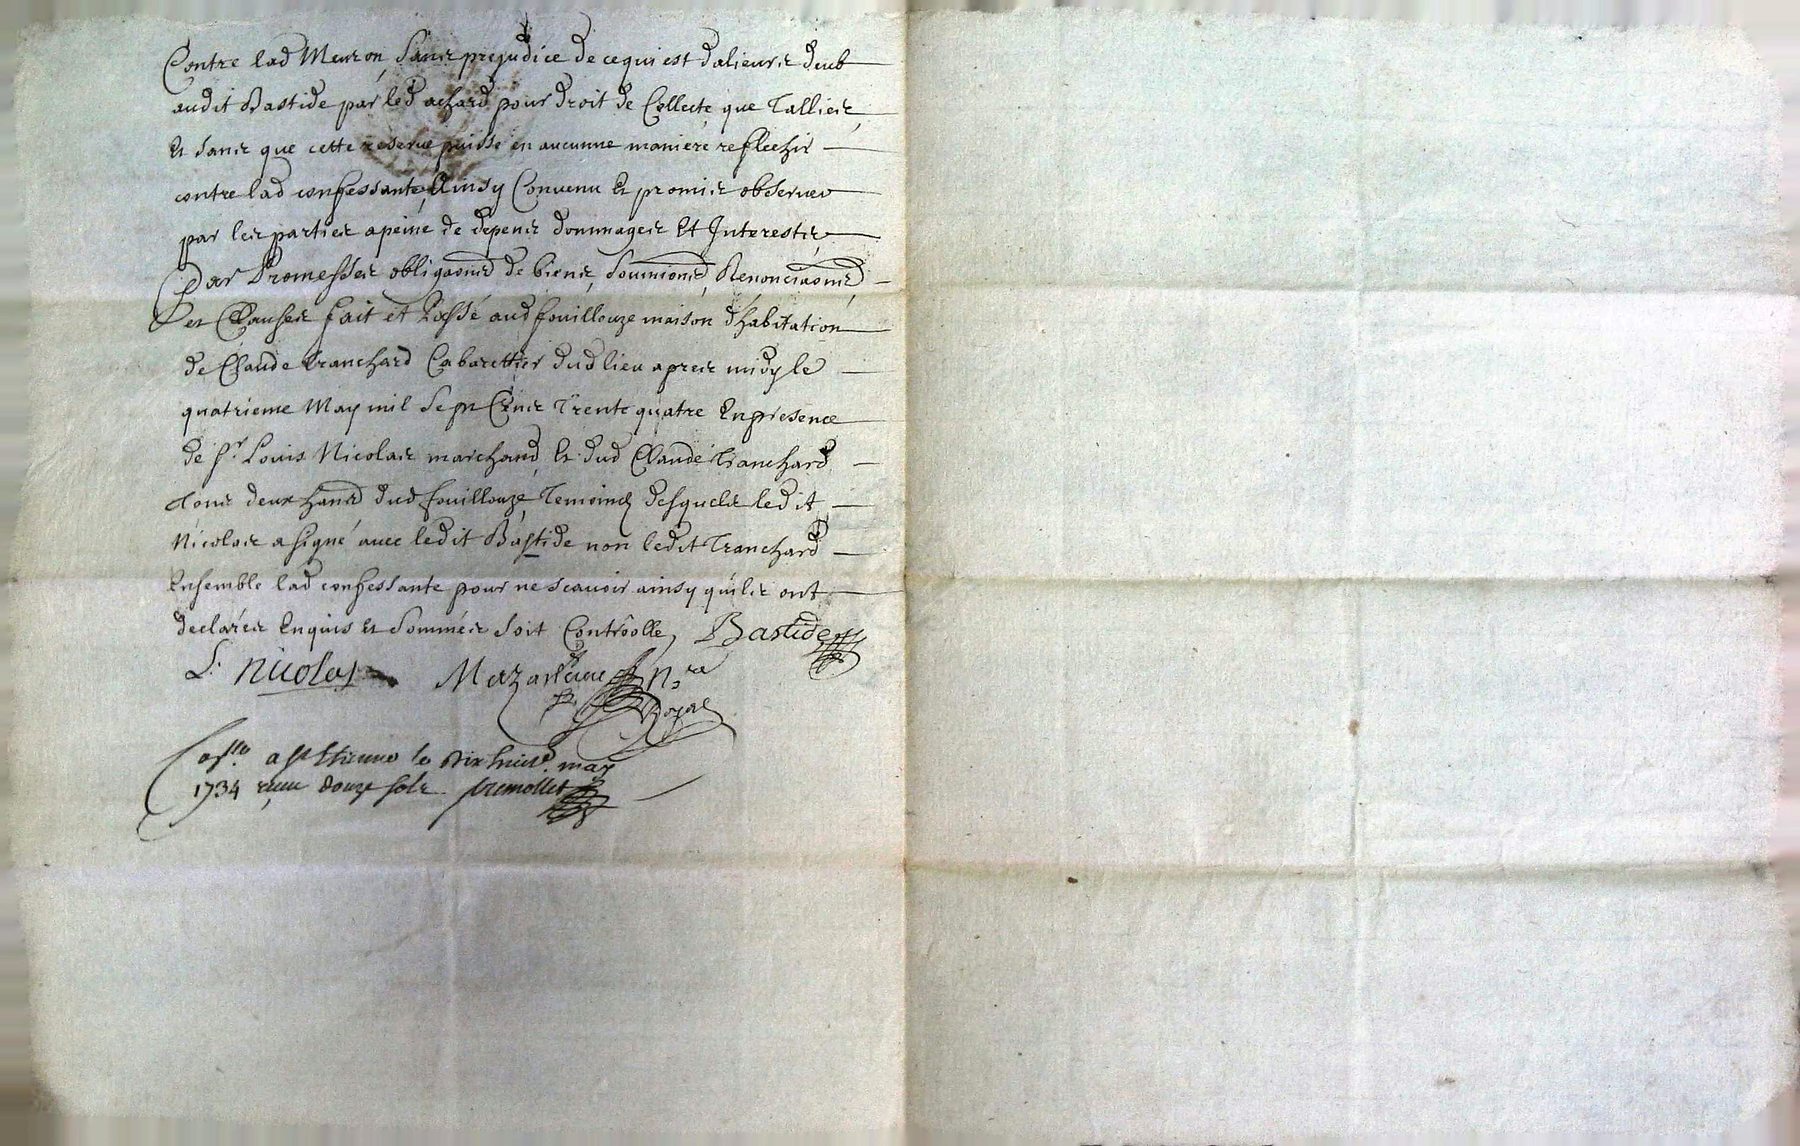 Contre lad Meuron, Sans prejudice de ce qui est dalieurs deub
audit Bastide par led achard pour droit de Collecte que Tallies,
Et sans que cette reserve puisse en aucunne maniere reflechir
contre lad confessante, Ainsy Convenu Et promis observer
par les parties apeine de depens dommages Et Interests,
Par Promesses obligaōns de biens, soumions, Renonciaōns,
et Clauses fait et Passé aud fouillouze maison dhabitation
de Claude Tranchard Cabarettier dud lieu apres midy le
quatrieme May mil Sept Cens Trente quatre En presence
de Sr. Louis Nicolas marchand, Et dud Claude Tranchard
Tous deux hans dud fouillouze, Temoins desquels ledit
Nicolas a signé avec ledit Bastide non ledit Tranchard
Ensemble lad confessante pour ne scavoir ainsy quils ont
declarés Enquis Et Sommés Soit Controolle, Bastide
L. Nicolas Mazenieux Nre
Royal
a St Etienne le dix huit may
1734 receu douze sols fremollet